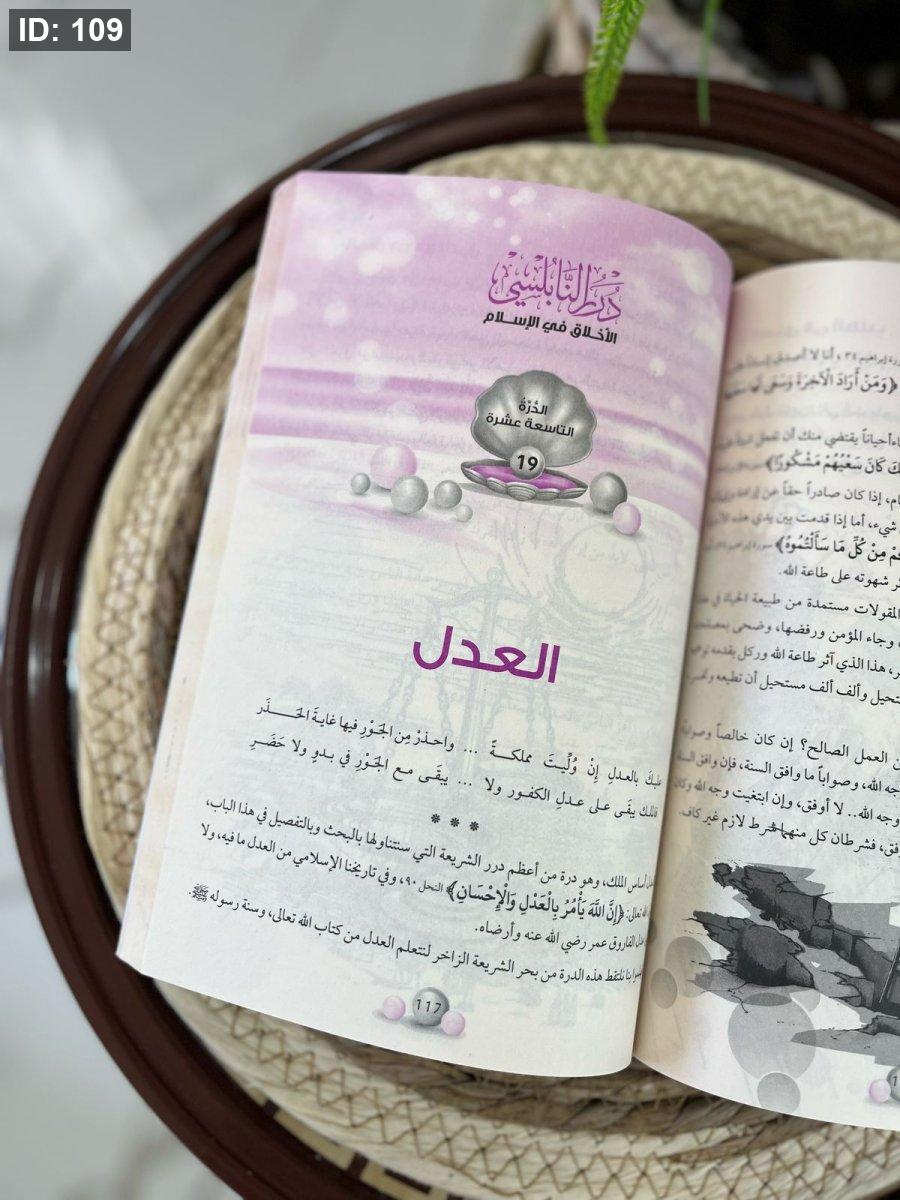 ID: 109
دُرَرُ النَّابُلْسِي
الأخلاق في الإسلام
الدُّرَّةُ
التاسعة عشرة
19
العدل
عليكَ بالعدلِ إنْ وُلِّيتَ مملكــةً ... واحذرْ مِن الجَوْرِ فيها غايةَ الحَــذَرِ
فالملك يبقَى على عدلِ الكفور ولا ... يبقَى مع الجَوْرِ في بدوٍ ولا حَضَرِ
* * *
أساس الملك، وهو درة من أعظم درر الشريعة التي سنتناولها بالبحث وبالتفصيل في هذا الباب،
الله تعالى: ﴿إِنَّ اللَّهَ يَأْمُرُ بِالْعَدْلِ وَالْإِحْسَانِ﴾ النحل ٩٠، وفي تاريخنا الإسلامي من العدل ما فيه، ولا
عدل الفاروق عمر رضي الله عنه وأرضاه.
بنا نلتقط هذه الدرة من بحر الشريعة الزاخر لنتعلم العدل من كتاب الله تعالى، وسنة رسوله ﷺ.
117
إبراهيم ٣٤، أنا لا أصدق
﴿وَمَنْ أَرَادَ الْآخِرَةَ وَسَعَى لَهَا سَعْيَهَا
أحياناً يقتضي منك أن تفعل
كَانَ سَعْيُهُم مَّشْكُورًا﴾
إذا كان صادراً حقاً عن إرادة
شيء، أما إذا قدمت بين يدي هذه
مِنْ كُلِّ مَا سَأَلْتُمُوهُ﴾ سورة إبراهيم
شهوته على طاعة الله.
المقولات مستمدة من طبيعة الحياة في هذه
وجاء المؤمن ورفضها، وضحى بمصلحته
هذا الذي آثر طاعة الله وركل بقدمه
وألف ألف مستحيل أن تطيعه وتخسر
العمل الصالح؟ إن كان خالصاً وصواباً
الله، وصواباً ما وافق السنة، فإن وافق السنة
وجه الله.. لا أوفق، وإن ابتغيت وجه الله وكان
فشرطان كل منهما شرط لازم غير كاف.